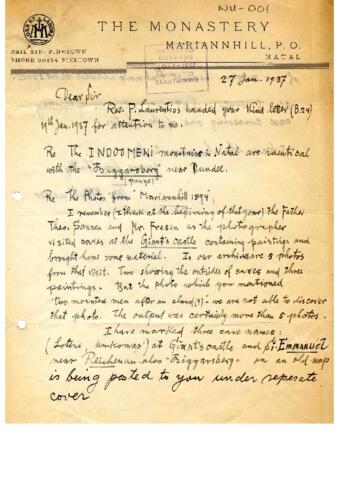 NU-001
THE MONASTERY
MARIANNHILL, P.O.
NATAL
RAIL STN. PINETOWN
PHONE 00154 PINETOWN
27 Jan. 1937
Dear Sir
Rev. P. Laurentius handed your kind letter (B.24)
19th Jan. 1937 for attention to me.
Re The INDOOMENI mountains in Natal are identical
with the Biggarsberg near Dundee.
(range)
Re the Photos from "Mariannhill 1894"
I remember (I think at the beginning of that year) the Father
Theo. and Mr Fresen as the photographer
visited caves at the Giant's Castle containing paintings and
brought home some material. In our archives are 5 photos
from that visit. Two showing the outsides of caves and three
paintings. But the photo which you mentioned
"two mounted men after an eland (?)" we are not able to discover
that photo. The output was certainly more than 5 photos.
I have marked three cave names:
(Loteni, Umkomas) at Giant's castle and St. Emmanuel
near Reichenau also "Biggarsberg" on an old map
is being posted to you under seperate
cover